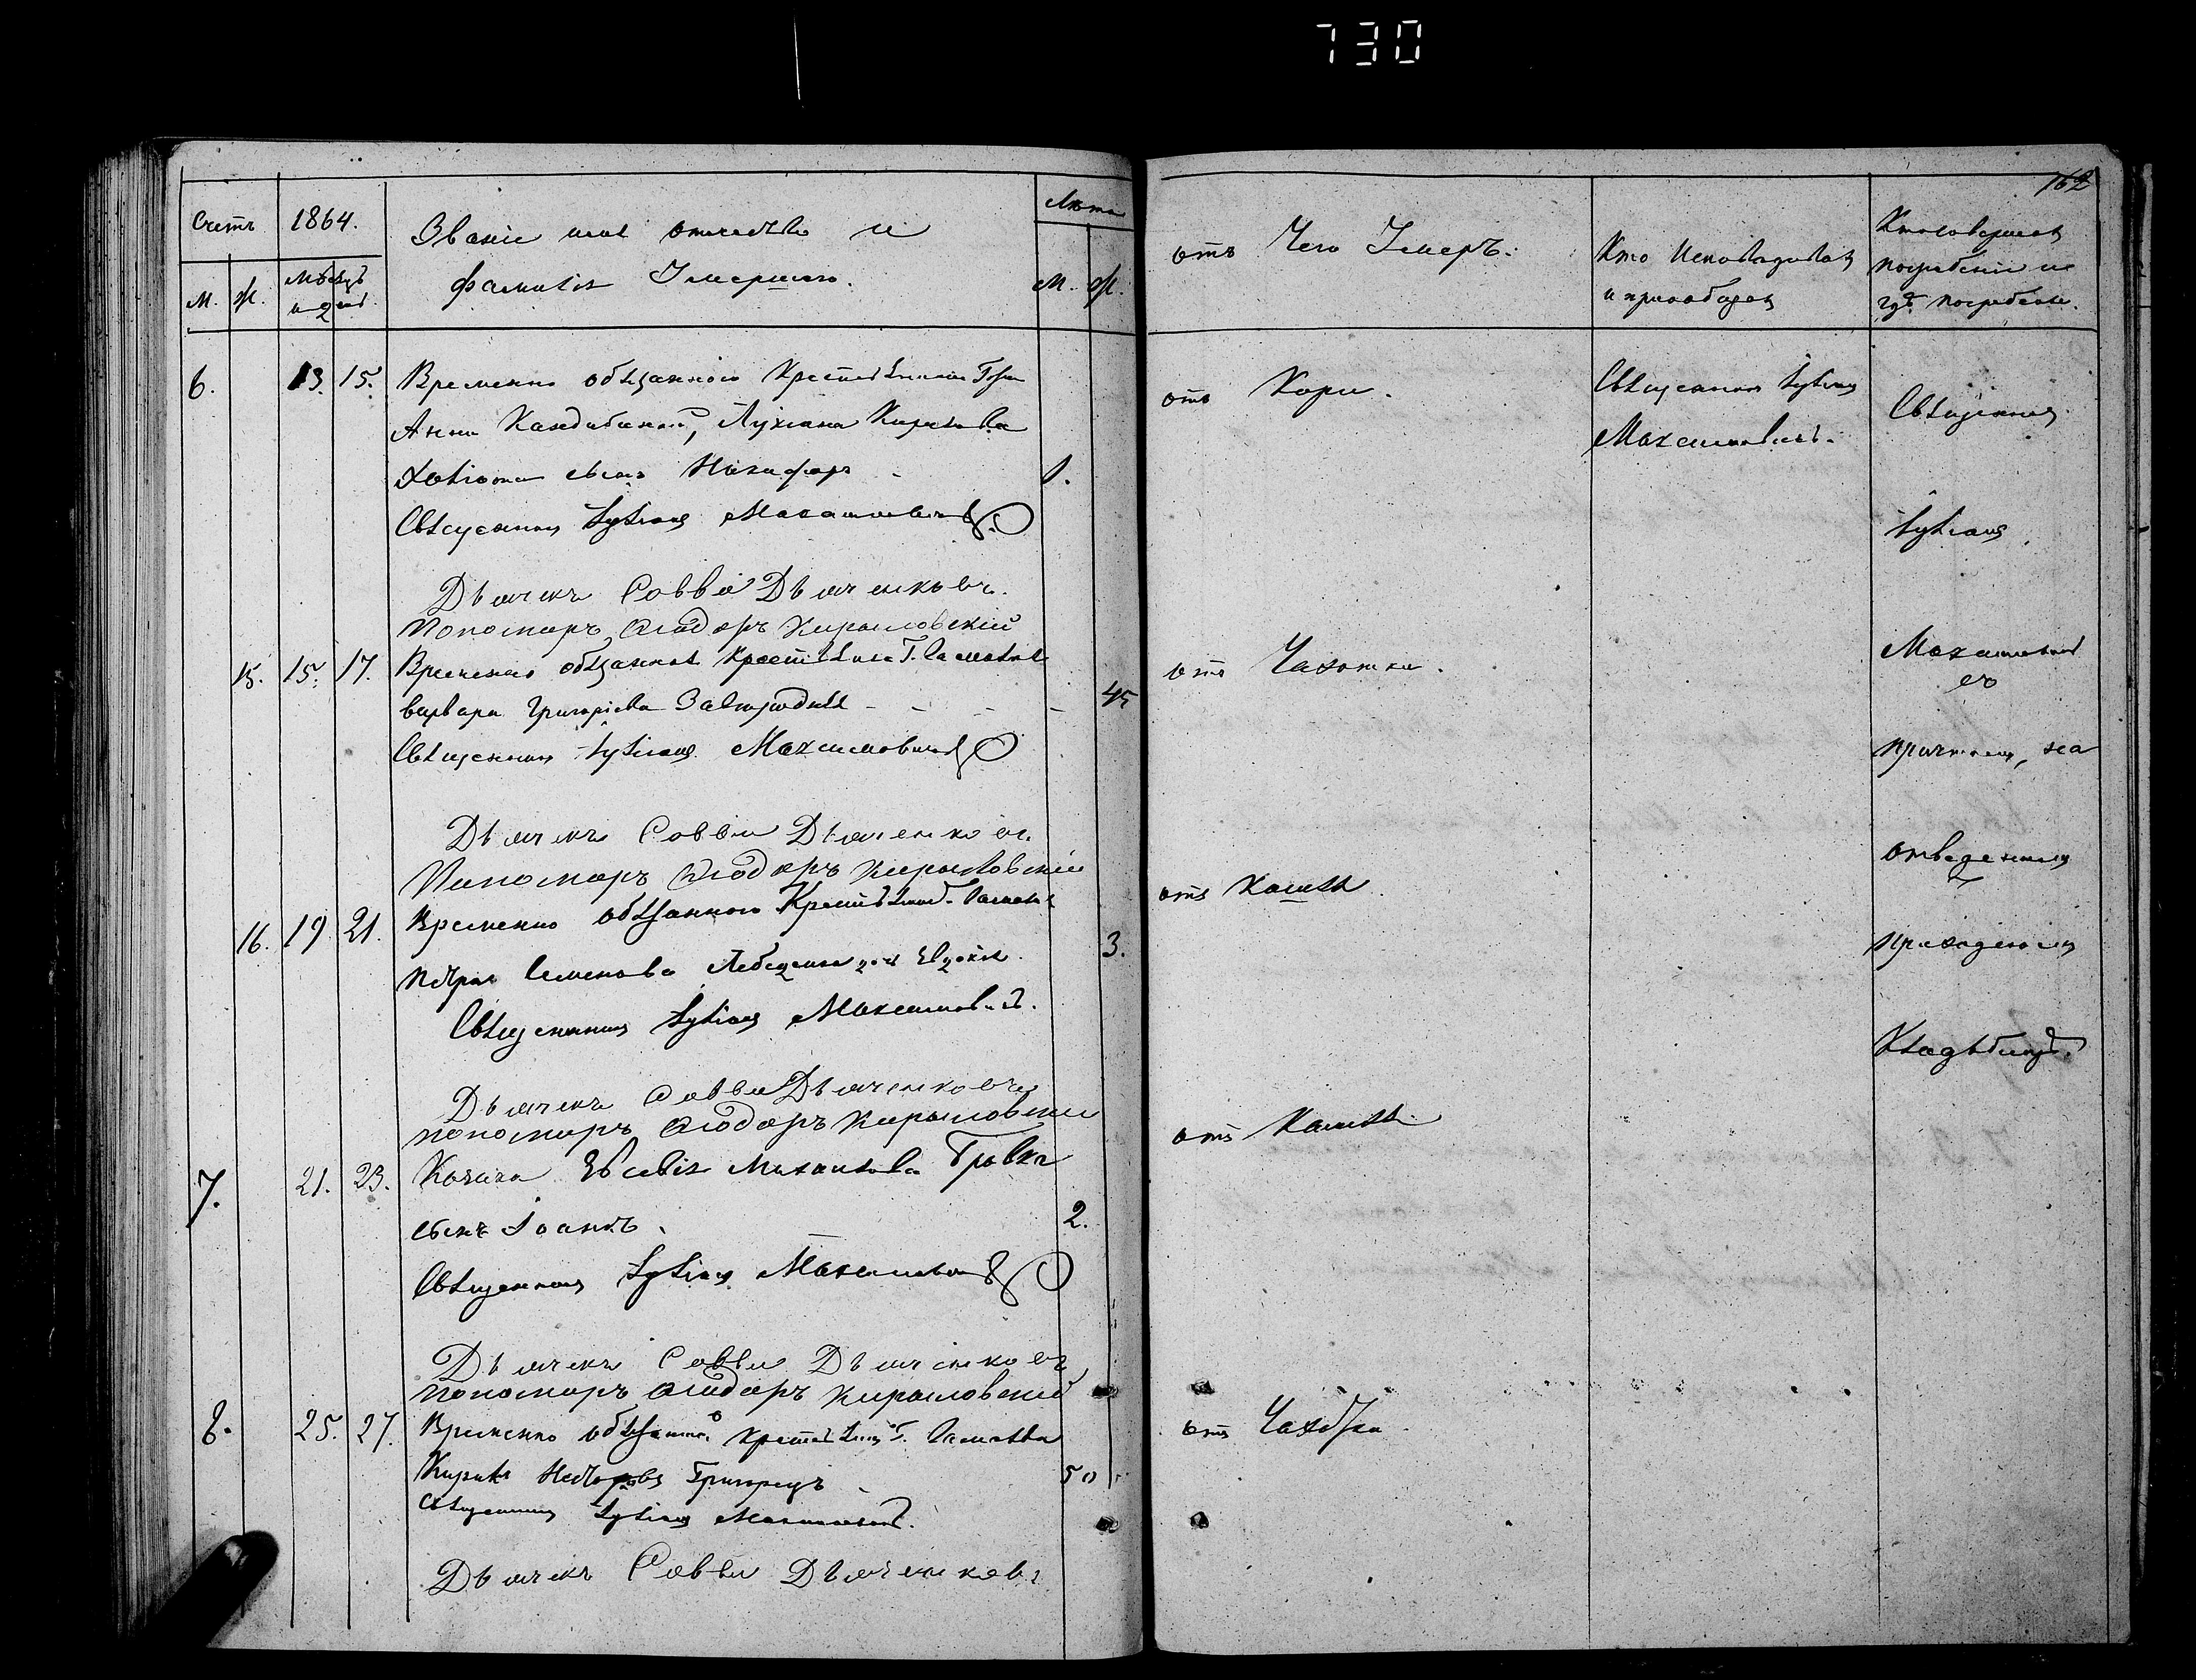 730
162
Счетъ
1864.
Званіе имя отчество и
фамилія Умершаго.
Лѣта
М. Ж.
Мѣсяцъ
и дни
М. Ж.
отъ Чего Умеръ.
Кто Исповѣдовалъ
и пріобщалъ
Кто совершалъ
погребеніе и
гдѣ погребены.
6. 13. 15. Временно обязанного Крестьянина
Анны Кандыбиной, Лукіана Кирилова
сынъ Никифоръ
1.
Священникъ Іуліанъ Максимовичъ
Дьячекъ Савва Дьяченковъ.
Пономарь Ѳіодоръ Кириловскій
15. 15. 17. Временно обязанная Крестьянка Г.
варвара Григоріева
45
Священникъ Іуліанъ Максимовичъ
Дьячекъ Савва Дьяченковъ.
Пономарь Ѳіодоръ Кириловскій
16. 19. 21. Временно обязанного Крестьянина
Петра Семенова дочь Евдокія
3.
Священникъ Іуліанъ Максимовичъ.
Дьячекъ Савва Дьяченковъ
пономарь Ѳіодоръ Кириловскій
7. 21. 23. Козака Михаилова
сынъ Іоаннъ.
2.
Священникъ Іуліанъ Максимовичъ
Дьячекъ Савва Дьяченковъ
пономарь Ѳіодоръ Кириловскій
8. 25. 27. Временно обязанный Крестьянинъ Г.
Кирилъ Григорецъ
50
Священникъ Іуліанъ Максимовичъ.
Дьячекъ Савва Дьяченковъ
отъ Кори.
отъ Чахотки.
отъ Кашля.
отъ Кашля
отъ Чахотки.
Священникъ Іуліанъ
Максимовичъ.
Священникъ
Іуліанъ
Максимовичъ
съ
причтомъ, на
отведенномъ
приходскомъ
Кладбищѣ.